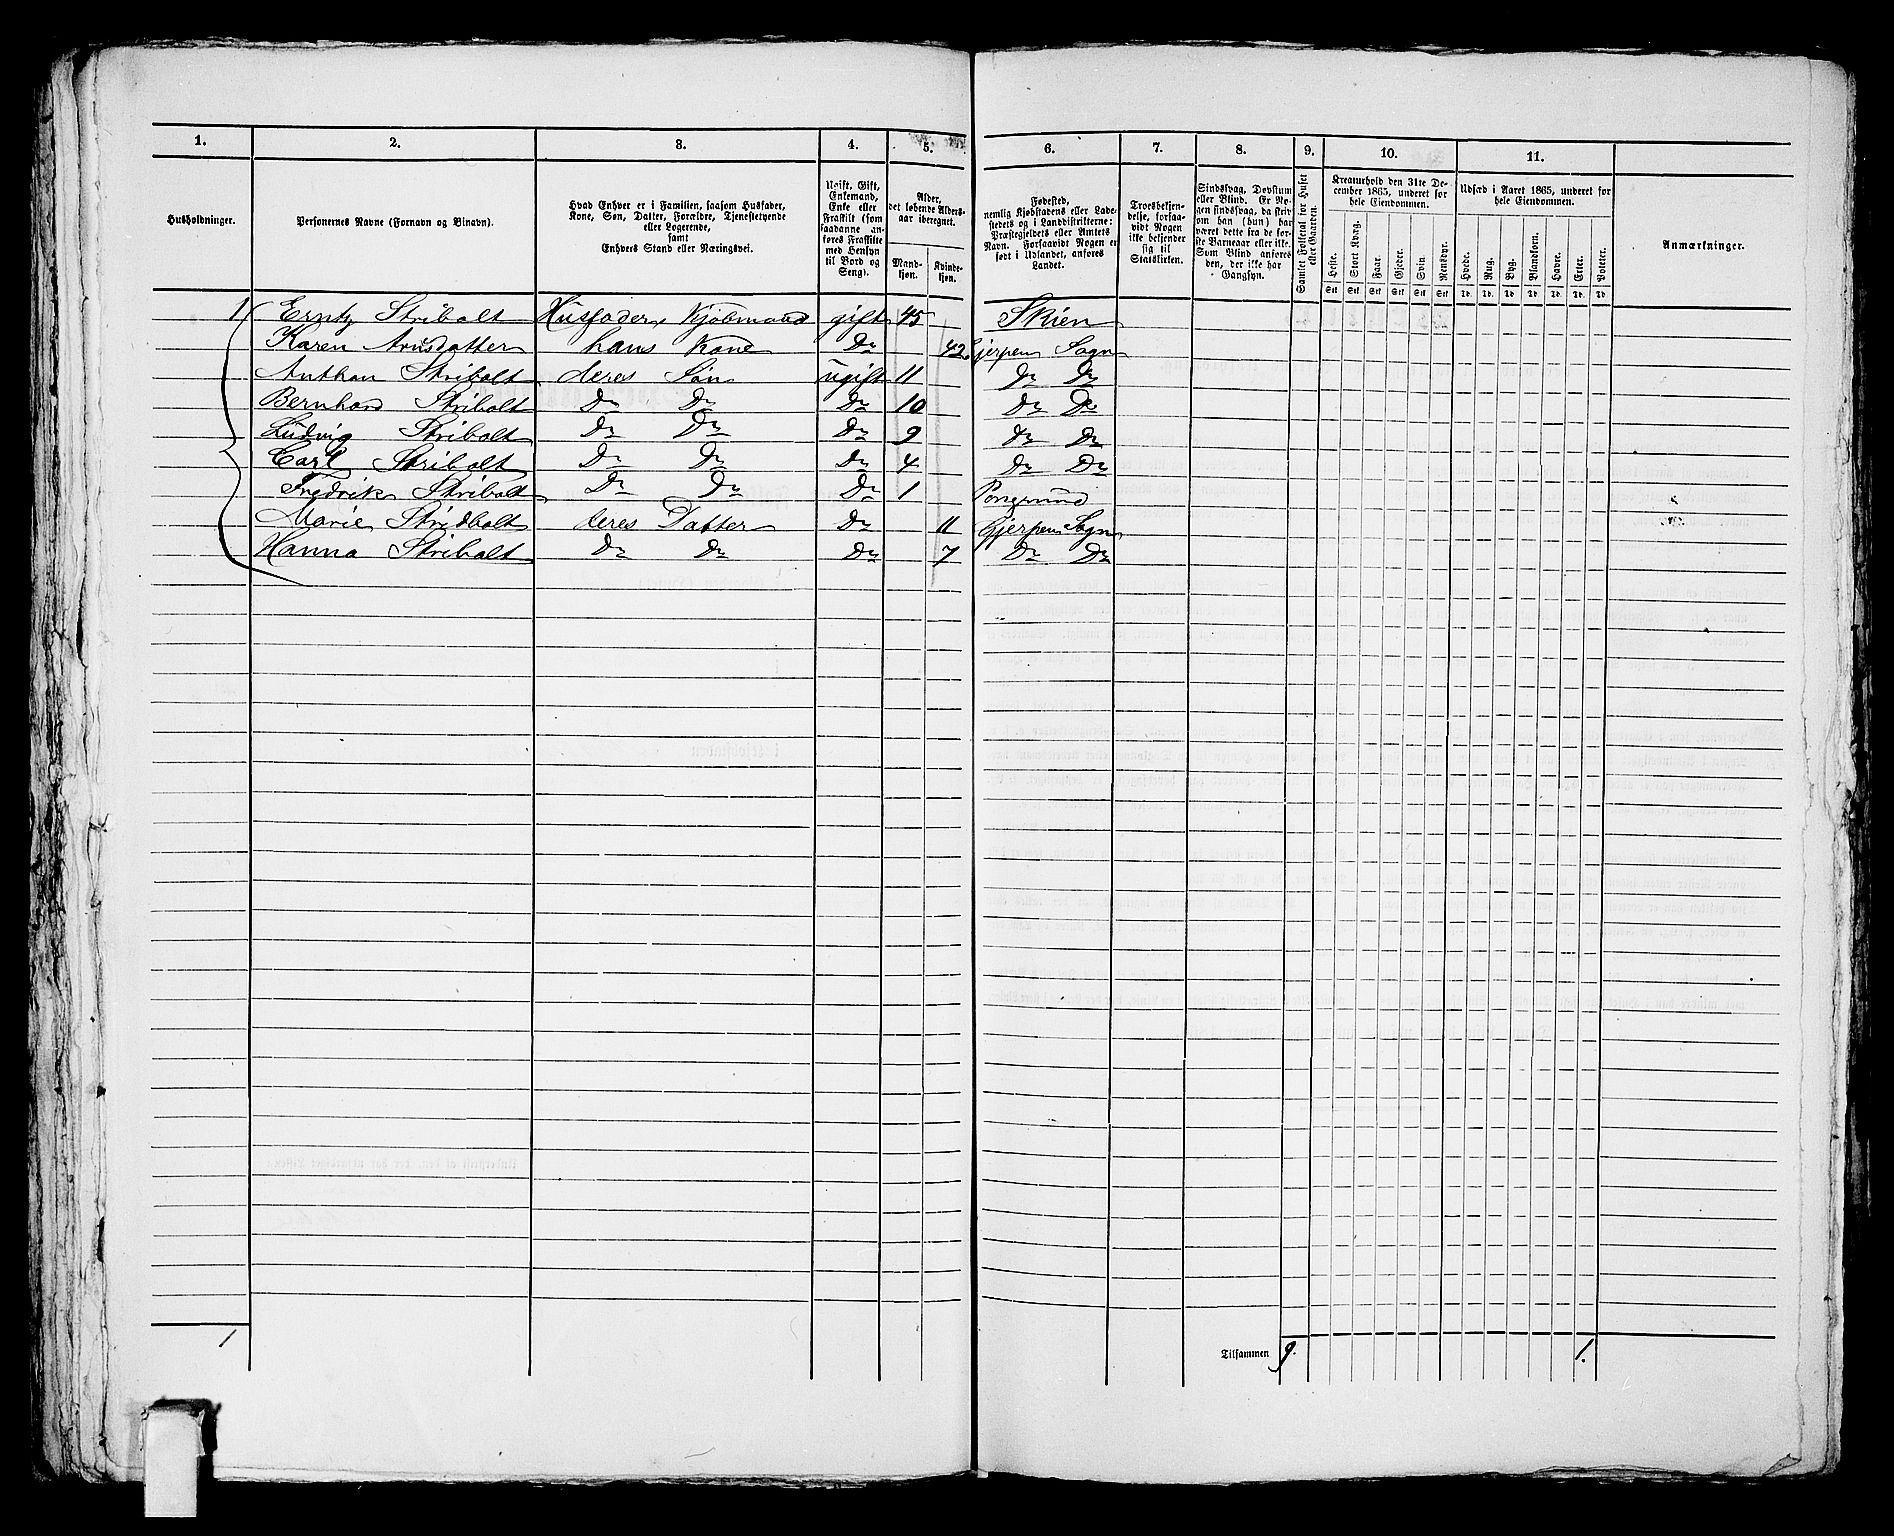 1. 2. 3. 4. 5. 6. 7. 8. 9. 10. 11.
Husholdninger.
Personernes Navne (Fornavn og Binavn).
Hvad Enhver er i Familien, saasom Husfader,
Kone, Søn, Datter, Forældre, Tjenestetyende
eller Logerende,
samt
Enhvers Stand eller Næringsvei.
Ugift, Gift,
Enkemand,
Enke eller
Fraskilt (som
saadanne an-
føres Fraskilte
med Hensyn
til Bord og
Seng).
Alder,
det løbende Alders-
aar iberegnet.
Mand-
kjøn.
Kvinde-
kjøn.
Fødested,
nemlig Kjøbstadens eller Lade-
stedets og i Landdistrikterne:
Præstegjeldets eller Amtets
Navn. Forsaavidt Nogen er
født i Udlandet, anføres
Landet.
Troesbekjen-
delse, forsaa-
vidt Nogen
ikke bekjender
sig til
Statskirken.
Sindssvag, Døvstum
eller Blind. Er No-
gen sindssvag, da skriv
om han (hun) har
været dette fra de før-
ste Barneaar eller ikke.
Som Blind anføres
den, der ikke har
Gangsyn.
Samlet Folketal for Huset
eller Gaarden.
Kreaturhold den 31te De-
cember 1865, underet for
hele Eiendommen.
Heste. Stort Kvæg. Faar. Gjeder. Svin. Rensdyr.
Stk Stk Stk Stk Stk Stk
Udsæd i Aaret 1865, underet for
hele Eiendommen.
Hvede. Rug. Byg. Blandkorn. Havre. Erter. Poteter.
Td. Td. Td. Td. Td. Td. Td
Anmærkninger.
1 Erntz Stribolt Husfader, Kjøbmand gift 45 Skien
Karen Arnsdatter hans Kone Do 42 Gjerpens Sogn
Anthon Stribolt deres Søn ugift 11 Do Do
Bernhard Stribolt Do Do Do 10 Do Do
Ludvig Stribolt Do Do Do 9 Do Do
Carl Stribolt Do Do Do 4 Do Do
Fredrik Stribolt Do Do Do 1 Porsgrund
Marie Stridbolt deres Datter Do 11 Gjerpens Sogn
Hanna Stribolt Do Do Do 7 Do Do
1 Tilsammen 9. 1.